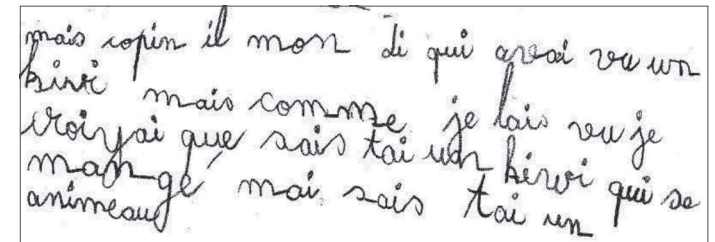 mais copin il mon di qui avai vu un
kiwi mais comme je lais vu je
croiyai que sais tai un kiwi qui se
mangé mai sais tai un
animeau